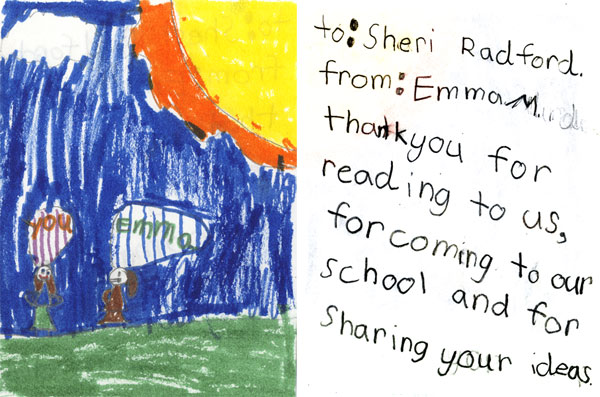 you
Emma
to: Sheri Radford.
from: Emma M.
thankyou for
reading to us,
for coming to our
school and for
sharing your ideas.